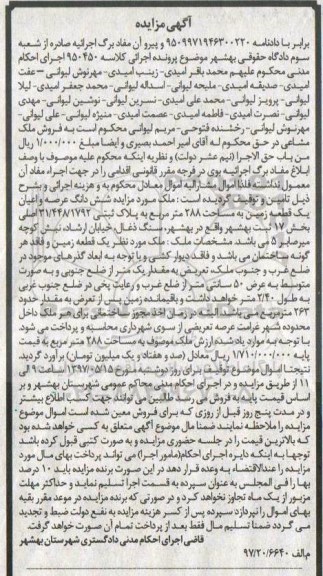 آگهی مزایده
برابر با دادنامه ۹۵۰۹۹۷۱۹۴۶۳۰۰۲۲۰ و پیرو آن مفاد برگ اجرائیه صادره از شعبه
سوم دادگاه حقوقی بهشهر موضوع پرونده اجرائی کلاسه ۹۵۰۴۵۰ اجرای احکام
مدنی محکوم علیهم محمد باقر امیدی - زینب امیدی - مهرنوش لیوانی - عفت
امیدی - صدیقه امیدی - ملیحه لیوانی - اسداله لیوانی - محمد جعفر امیدی - لیلا
لیوانی - پرویز لیوانی - محمد علی امیدی - نسرین لیوانی - نوشین لیوانی - مهدی
لیوانی - نصرت امیدی - فاطمه امیدی - عصمت امیدی - منیژه لیوانی - علی لیوانی -
مهرنوش لیوانی - رخشنده فتوحی - مریم لیوانی محکوم است به فروش ملک
مشاعی در حق محکوم له آقای امیر احمد بصیری و ایضا مبلغ ۱/۰۰۰/۰۰۰ ریال
من باب حق الاجرا (نیم عشر دولت) و نظر به اینکه محکوم علیه موصوف با وصف
ابلاغ مفاد برگ اجرائیه بوی در فرجه مقرر قانونی اقدامی را در جهت اجراء مفاد آن
معمول نداشته فلذا اموال مشارالیه اموال معادل محکوم به و هزینه اجرائی و بشرح
ذیل تامین و توقیف گردیده است: ملک مورد مزایده شش دانگ عرصه و اعیان
یک قطعه زمین به مساحت ۲۸۸ متر مربع به پلاک ثبتی ۳۱/۴۴۸۱۷۹۲ اصلی
بخش ۱۷ ثبت بهشهر واقع در بهشهر، سنگ ذغال، خیابان ارشاد، نبش کوچه
میرصابر ۵ می باشد. مشخصات ملک: ملک مورد نظر یک قطعه زمین و فاقد هر
گونه ساختمان می باشد و فاقد دیوار کشی و با توجه به ابعاد گذرهای موجود در
ضلع غرب و جنوب ملک، تعریض به مقدار یک متر از ضلع جنوبی و به صورت
متوسط به عرض ۵۰ سانتی متر از ضلع غرب و رعایت پخی در ضلع جنوب غربی
به طول ۲/۴۰ متر خواهد داشت و باقیمانده زمین پس از تعرض به مقدار حدود
۲۶۳ مترمربع می باشد. البته در زمان اخذ مجوز ساختمانی برای هر ملک داخل
محدوده شهر غرامت عرصه تعریضی از سوی شهرداری محاسبه و پرداخت می شود.
با توجه به موارد یاد شده ارزش ملک موصوف به مساحت ۲۸۸ متر مربع به قیمت
پایه ۱/۷۱۰/۰۰۰/۰۰۰ ریال معادل (صد و هفتاد و یک میلیون تومان) برآورد گردید.
نتیجتا اموال موضوع توقیف برای روز دوشنبه مورخ ۱۳۹۷/۰۵/۱۵ ساعت ۹ الی
۱۱ از طریق مزایده و در اجرای احکام مدنی محاکم عمومی شهرستان بهشهر و بر
اساس قیمت پایه به فروش می رسد طالبین می توانند جهت کسب اطلاع بیشتر
و در مدت پنج روز قبل از روزی که برای فروش معین شده است اموال موضوع
مزایده را ملاحظه نمایند ضمنا مال موضوع آگهی متعلق به کسی خواهد شد بود
که بالاترین قیمت را در جلسه حضوری مزایده و به صورت کتبی قبول کرده باشد
توجها به اینکه دایره اجرای احکام (مامور اجرا) می تواند پرداخت بهای مال مورد
مزایده را عندالاقتضاء به وعده قرار دهد در این صورت برنده مزایده باید ۱۰ درصد
بها را فی المجلس به عنوان سپرده به قسمت اجرا تسلیم نماید و حداکثر مهلت
مزبور از یک ماه تجاوز نخواهد کرد و در صورتی که برنده مزایده در موعد مقرر بقیه
بهای اموال را نپردازد سپرده پس از کسر هزینه مزایده به نفع دولت ضبط و تجدید
می گردد ضمنا تسلیم مال فقط بعد از پرداخت تمام آن صورت خواهد گرفت.
قاضی اجرای احکام مدنی دادگستری شهرستان بهشهر
م الف ۹۷/۲۰/۶۶۴۰